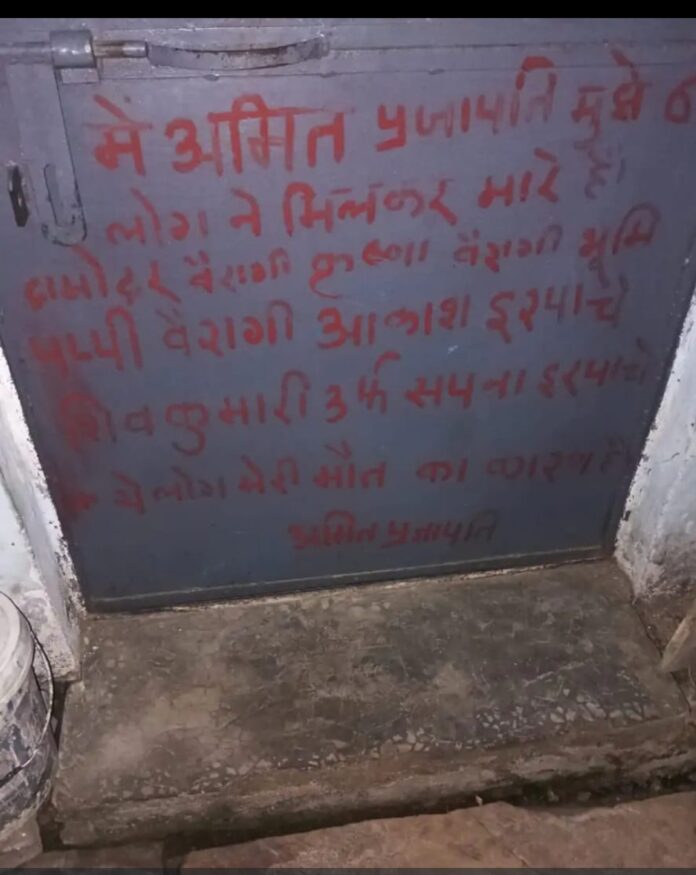 मे अमित प्रजापति मुझे 6
लोग ने मिलकर मारे
दामोदर वैरागी कृष्णा वैरागी भूमि
पप्पी वैरागी आकाश इरपाचे
शिवकुमारी उर्फ सपना इरपाचे
ये लोग मेरी मौत का कारण है
अमित प्रजापति